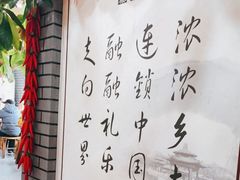 浓浓乡
连锁中国
融融礼乐
走向世界